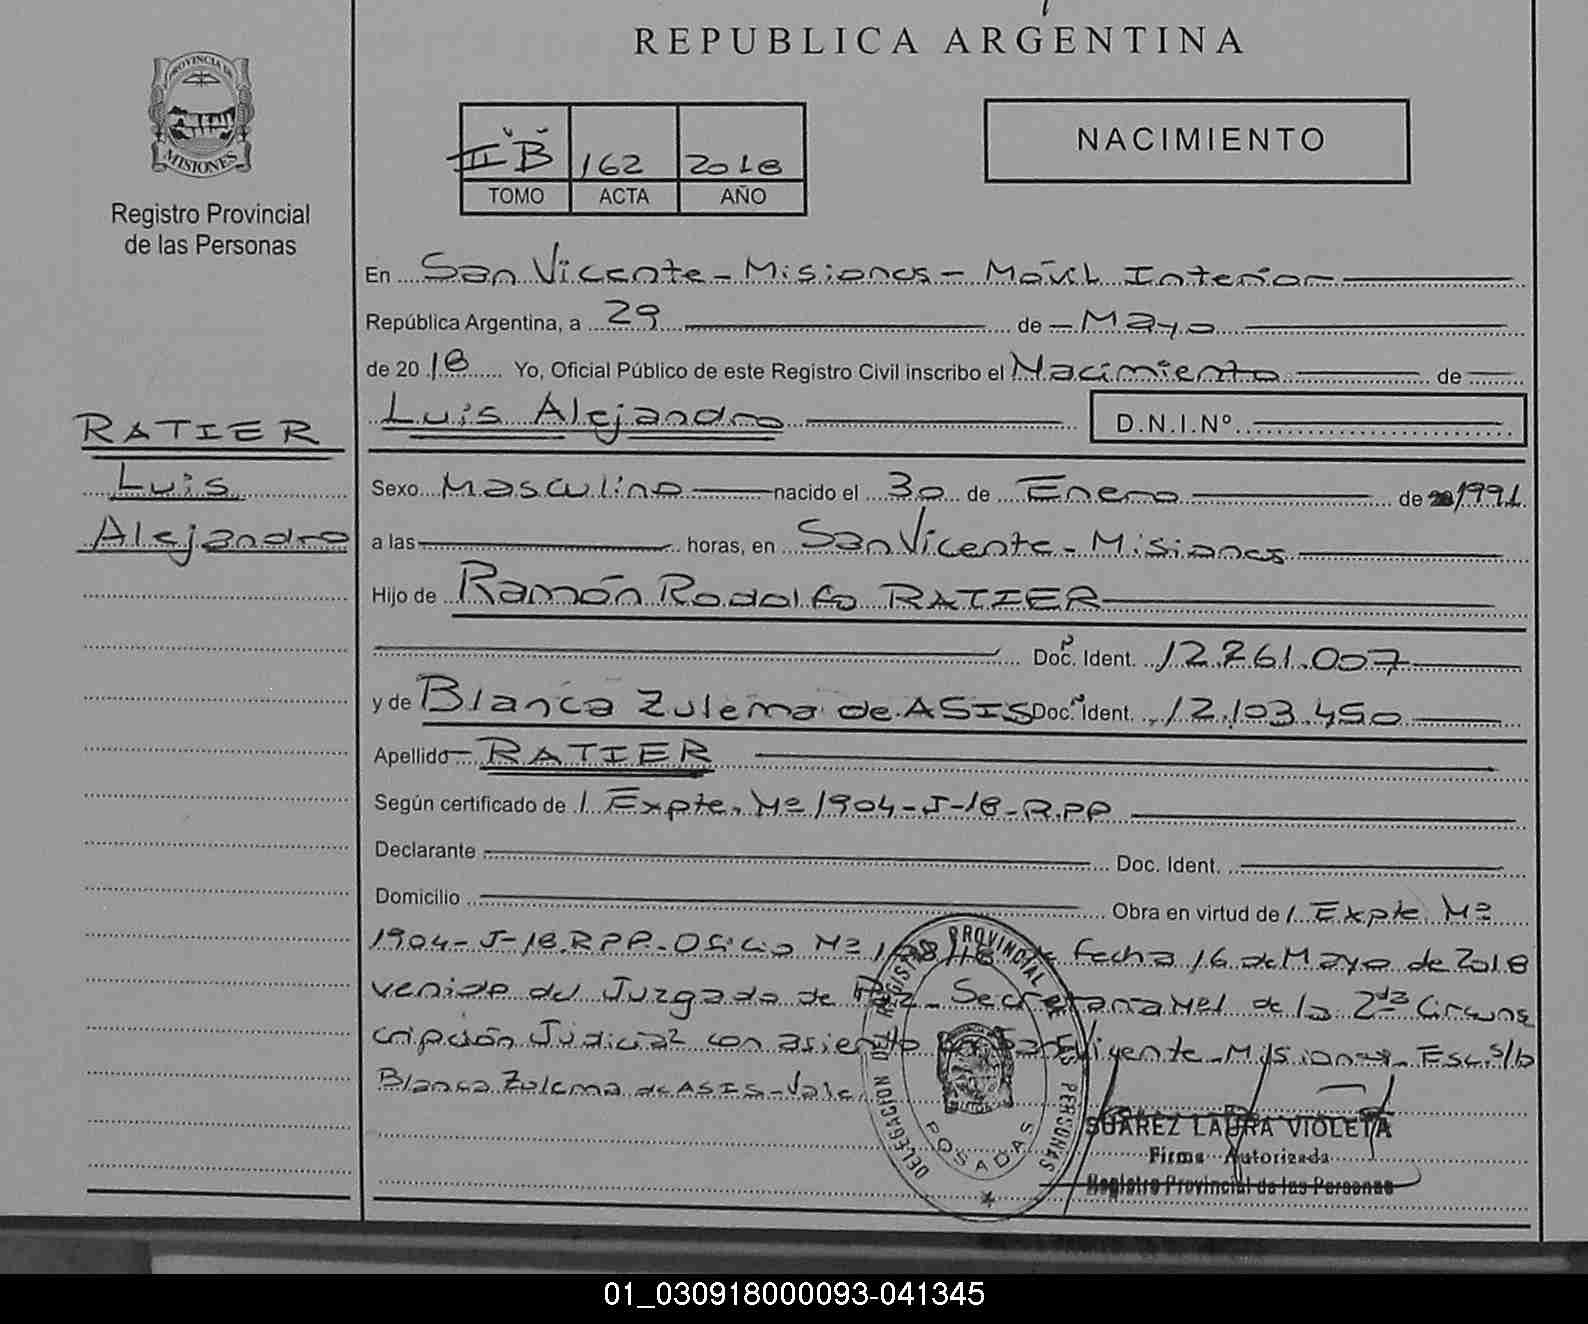 REPUBLICA ARGENTINA
PROVINCIA DE
MISIONES
Registro Provincial
de las Personas
II B 162 2018
TOMO ACTA AÑO
NACIMIENTO
En San Vicente - Misiones - Móvil Interior
República Argentina, a 29 de Mayo
de 2018 Yo, Oficial Público de este Registro Civil inscribo el Nacimiento de
Luis Alejandro D.N.I.Nº
RATIER
Luis
Alejandro
Sexo Masculino nacido el 30 de Enero de 1991
a las horas, en San Vicente - Misiones
Hijo de Ramón Rodolfo RATIER
Doc. Ident. 12.261.007
y de Blanca Zulema de ASIS Doc. Ident. 12.103.450
Apellido RATIER
Según certificado de Expte. Nº 1904-J-18-R.PP
Declarante Doc. Ident.
Domicilio Obra en virtud de Expte Nº
1904-J-18.RPP-Oficio Nº fecha 16 de Mayo de 2018
venido del Juzgado de Paz - Secretaria Nº1 de la 2da Circuns
cripción Judicial con asiento en San Vicente - Misiones - Esc. s/b
Blanca Zulema de ASIS - Vale.
DELEGACION DEL REGISTRO PROVINCIAL DE LAS PERSONAS
POSADAS
SUAREZ LAURA VIOLETA
Firma Autorizada
Registro Provincial de las Personas
01_030918000093-041345